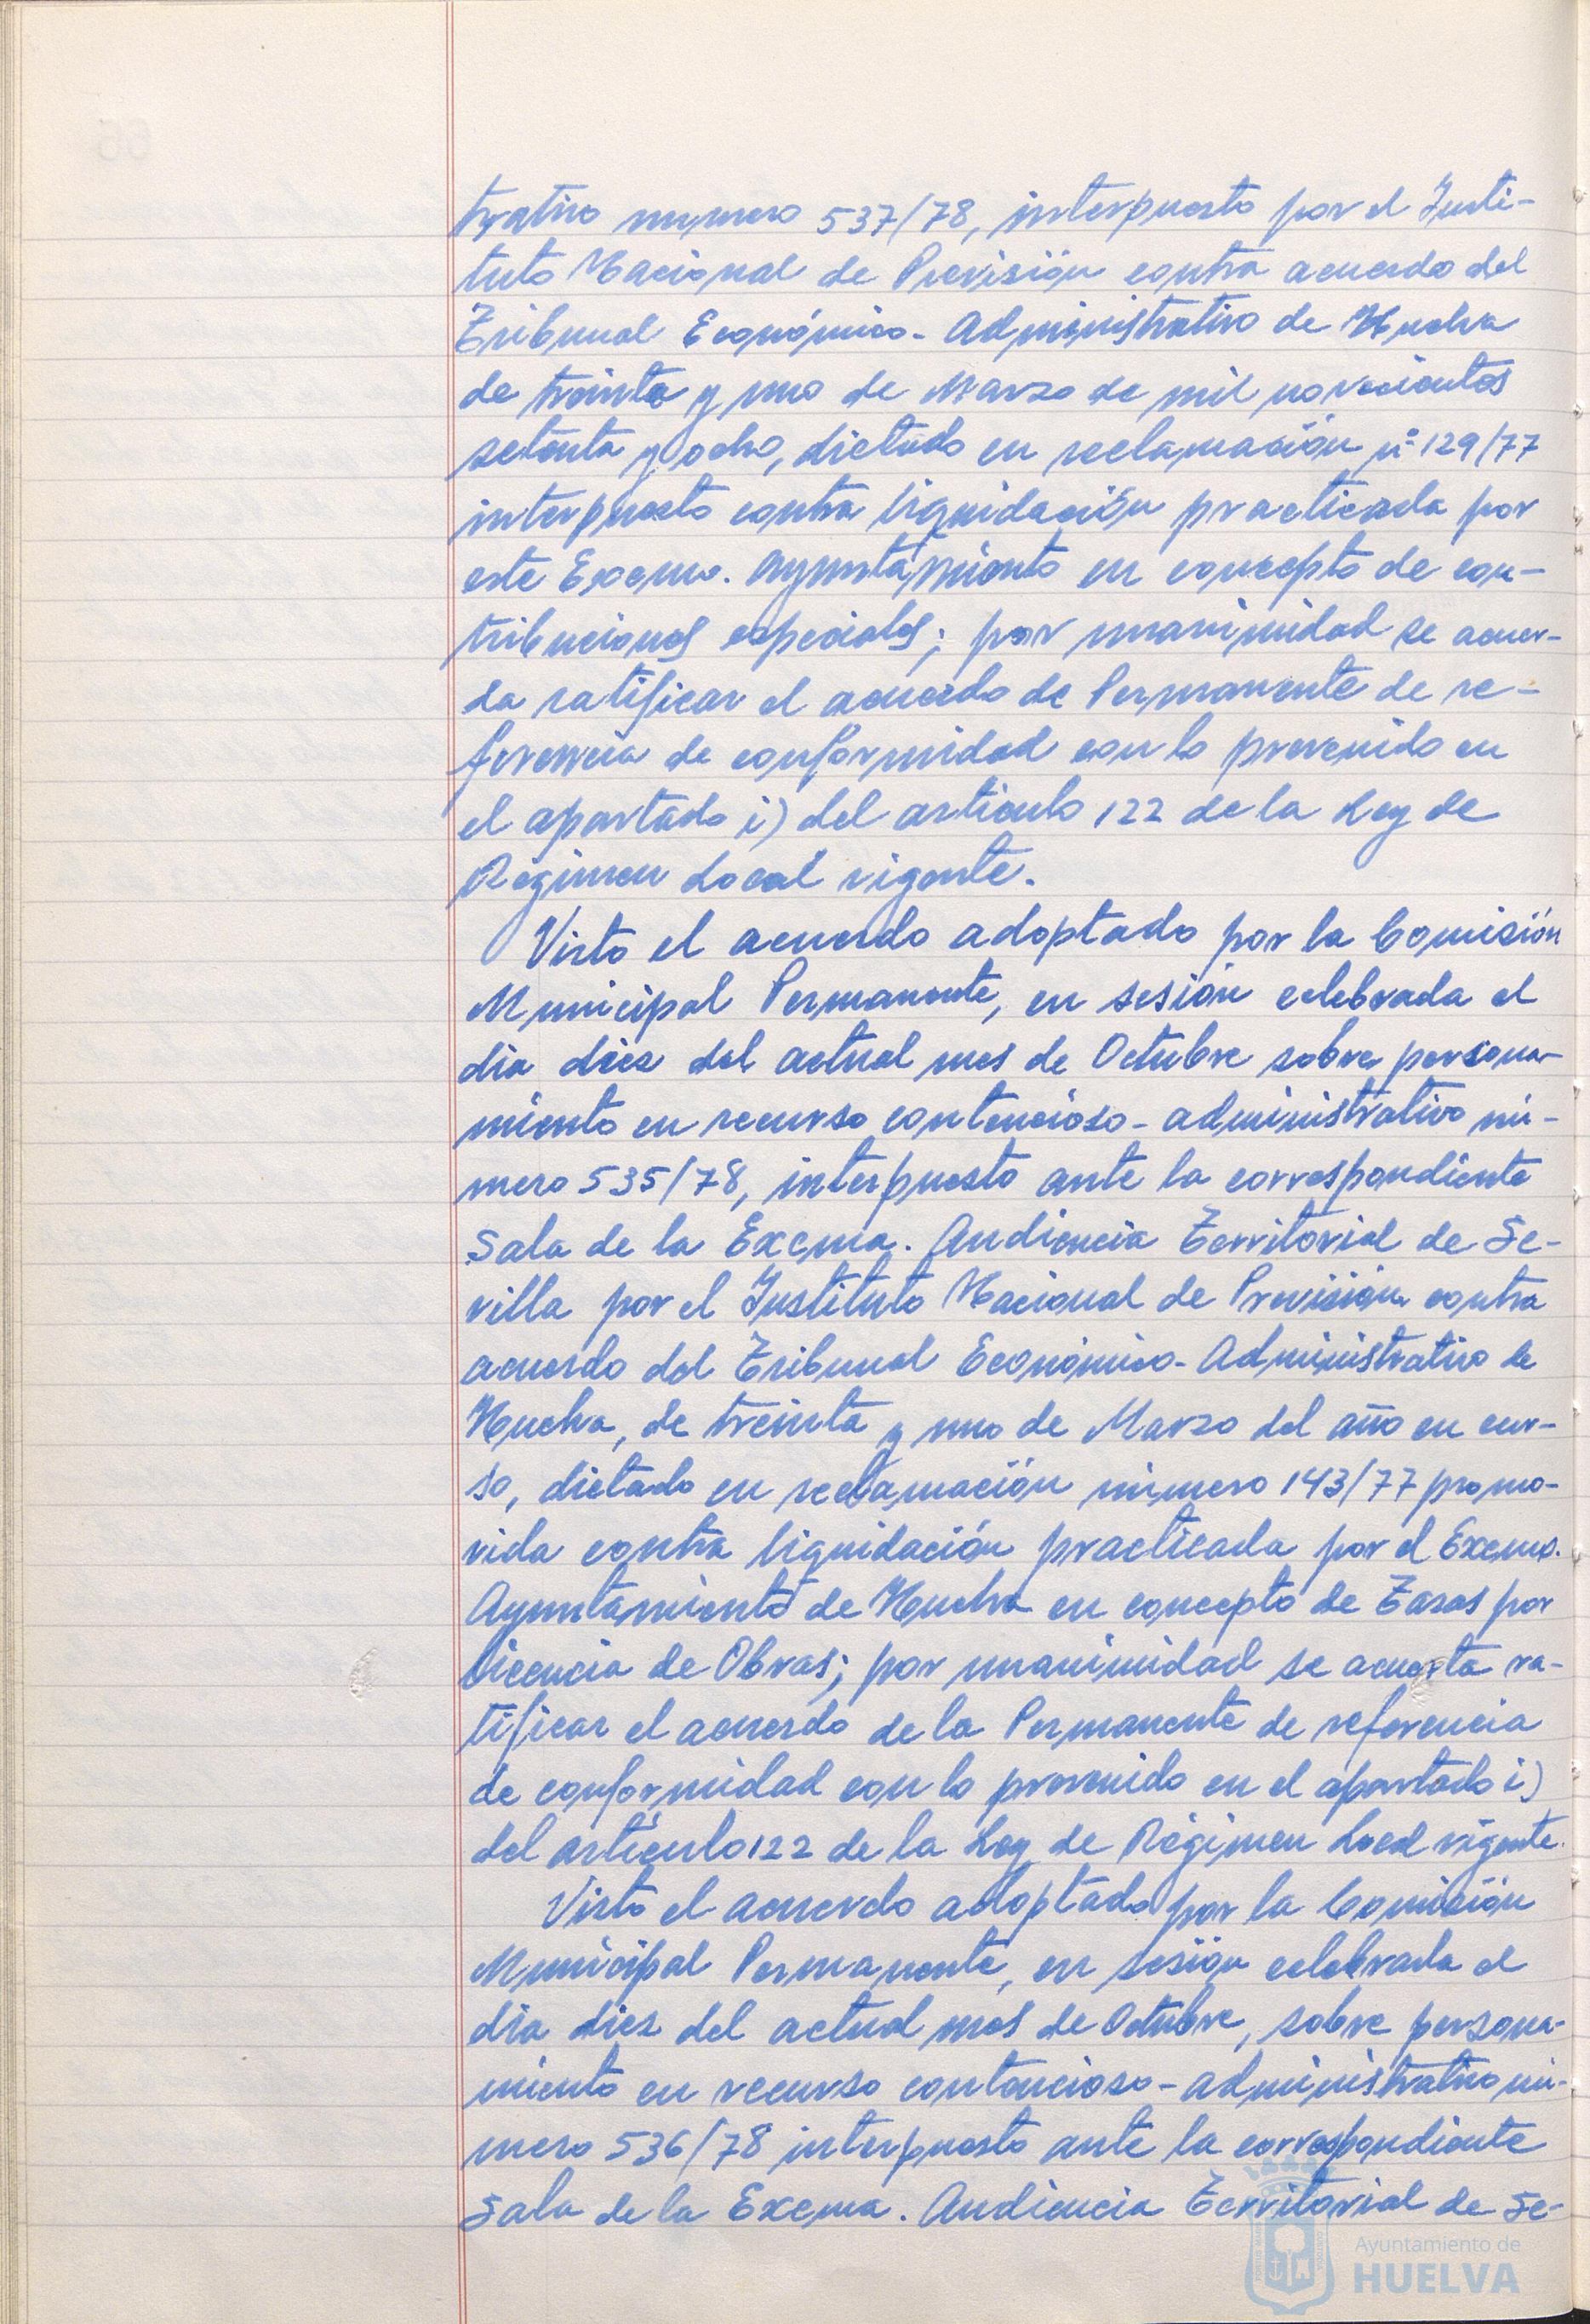 trativo numero 537/78, interpuesto por el Insti-
tuto Nacional de Previsión contra acuerdo del
Tribunal Económico-Administrativo de Huelva
de treinta y uno de Marzo de mil novecientos
setenta y ocho, dictado en reclamación nº 129/77
interpuesto contra liquidación practicada por
este Excmo. Ayuntamiento en concepto de con-
tribuciones especiales; por unanimidad se acuer-
da ratificar el acuerdo de Permanente de re-
ferencia de conformidad con lo prevenido en
el apartado i) del articulo 122 de la Ley de
Régimen Local vigente.
Visto el acuerdo adoptado por la Comisión
Municipal Permanente, en sesión celebrada el
dia diez del actual mes de Octubre sobre persona-
miento en recurso contencioso-administrativo nú-
mero 535/78, interpuesto ante la correspondiente
Sala de la Excma. Audiencia Territorial de Se-
villa por el Instituto Nacional de Previsión contra
acuerdo del Tribunal Económico-Administrativo de
Huelva, de treinta y uno de Marzo del año en cur-
so, dictado en reclamación número 143/77 promo-
vida contra liquidación practicada por el Excmo.
Ayuntamiento de Huelva en concepto de Tasas por
Licencia de Obras; por unanimidad se acuerda ra-
tificar el acuerdo de la Permanente de referencia
de conformidad con lo prevenido en el apartado i)
del artículo 122 de la Ley de Régimen Local vigente.
Visto el acuerdo adoptado por la Comisión
Municipal Permanente, en sesión celebrada el
dia diez del actual mes de Octubre, sobre persona-
miento en recurso contencioso-administrativo nú-
mero 536/78 interpuesto ante la correspondiente
Sala de la Excma. Audiencia Territorial de Se-
Ayuntamiento de
HUELVA